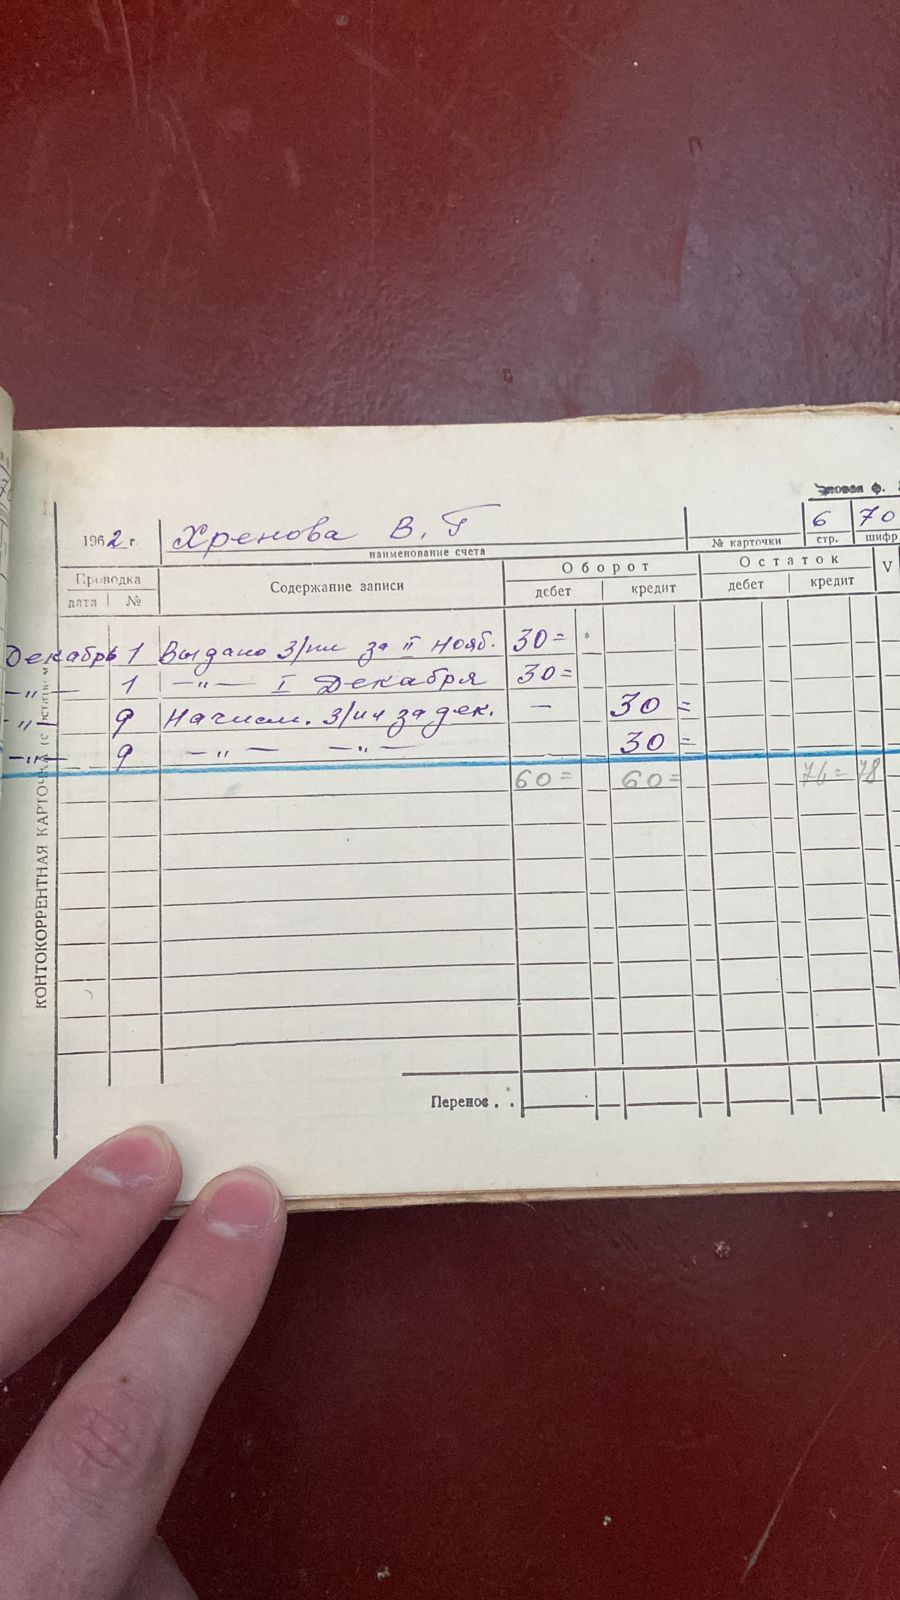 6 70
1962 г. Хренова В. Г
наименование счета № карточки стр. шифр
Проводка Содержание записи Оборот Остаток V
дата № дебет кредит дебет кредит
Декабрь 1 Выдано З/пл за II Нояб. 30=
—"— 1 —"— I Декабря 30=
—"— 9 Начисл. З/пл за дек. — 30=
—"— 9 —"— —"— 30=
60= 60= 78
Перенос . .
КОНТОКОРРЕНТНАЯ КАРТОЧКА